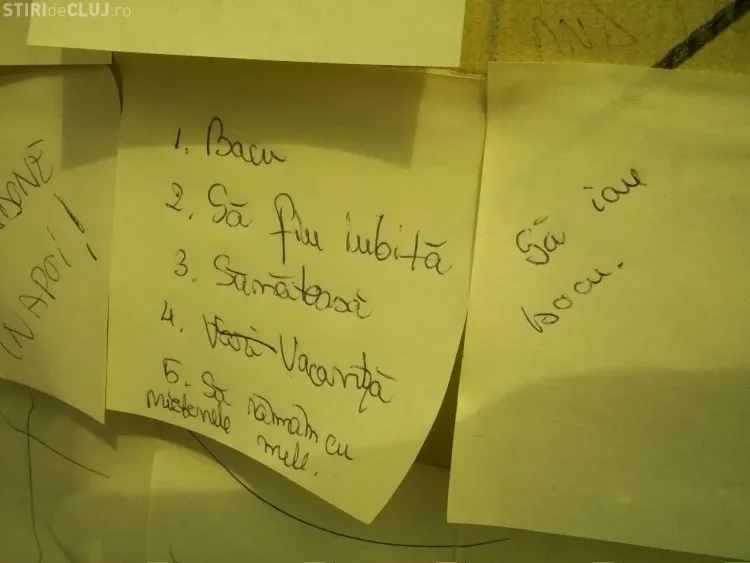 STIRIdeCLUJ.ro
ÎNAPOI!
1. Bacu
2. Să fiu iubită
3. Sănătoasă
4. Vacanță
5. Să rămân cu
mele.
Să iau
bacu.